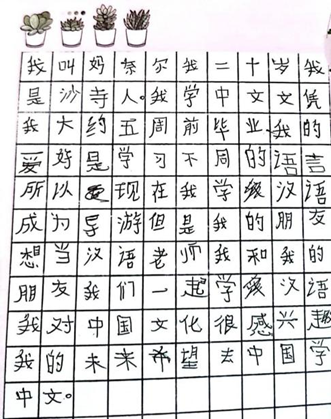 我叫妈奈尔我二十岁我
是沙寺人。我学中文文凭
我大约五周前毕业、我的
爱好是学习不同的语言
所以现在我学汉语
成为导游但是我的朋友
想当汉语老师我和我的
朋友我们一起学汉语
我对中国文化很感兴趣
我的未来希望去中国学
中文。